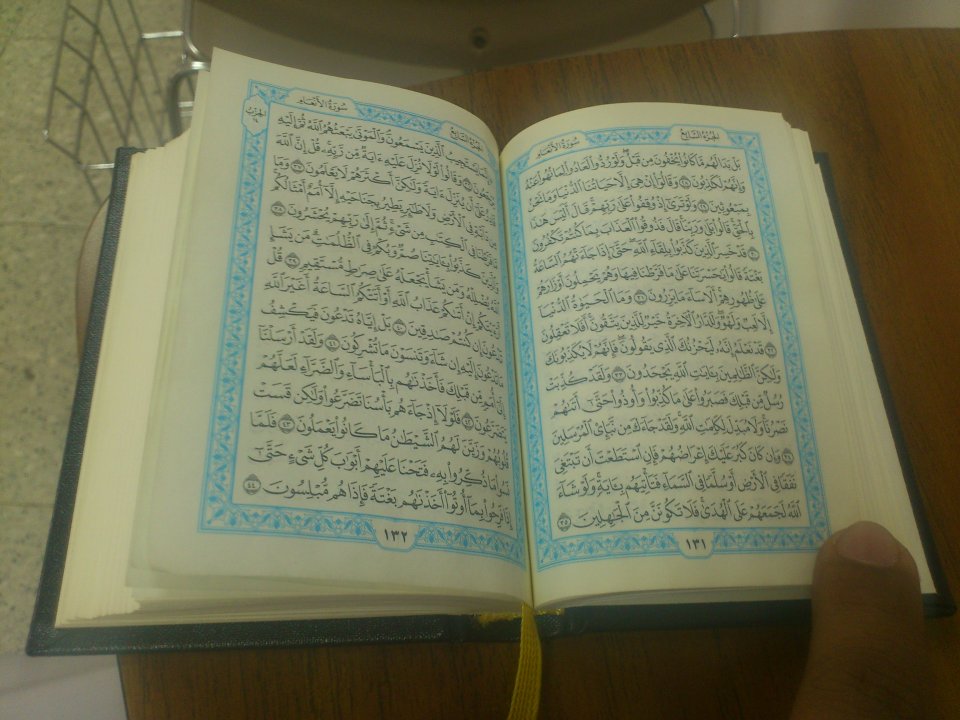 الجزء السابع
سورة الأنعام
بَلْ بَدَا لَهُم مَّا كَانُوا۟ يُخْفُونَ مِن قَبْلُ وَلَوْ رُدُّوا۟ لَعَادُوا۟ لِمَا نُهُوا۟ عَنْهُ
وَإِنَّهُمْ لَكَٰذِبُونَ ٢٨ وَقَالُوٓا۟ إِنْ هِىَ إِلَّا حَيَاتُنَا ٱلدُّنْيَا وَمَا نَحْنُ
بِمَبْعُوثِينَ ٢٩ وَلَوْ تَرَىٰٓ إِذْ وُقِفُوا۟ عَلَىٰ رَبِّهِمْ قَالَ أَلَيْسَ هَٰذَا
بِٱلْحَقِّ قَالُوا۟ بَلَىٰ وَرَبِّنَا قَالَ فَذُوقُوا۟ ٱلْعَذَابَ بِمَا كُنتُمْ تَكْفُرُونَ
٣٠ قَدْ خَسِرَ ٱلَّذِينَ كَذَّبُوا۟ بِلِقَآءِ ٱللَّهِ حَتَّىٰٓ إِذَا جَآءَتْهُمُ ٱلسَّاعَةُ
بَغْتَةً قَالُوا۟ يَٰحَسْرَتَنَا عَلَىٰ مَا فَرَّطْنَا فِيهَا وَهُمْ يَحْمِلُونَ أَوْزَارَهُمْ
عَلَىٰ ظُهُورِهِمْ أَلَا سَآءَ مَا يَزِرُونَ ٣١ وَمَا ٱلْحَيَوٰةُ ٱلدُّنْيَآ
إِلَّا لَعِبٌ وَلَهْوٌ وَلَلدَّارُ ٱلْءَاخِرَةُ خَيْرٌ لِّلَّذِينَ يَتَّقُونَ أَفَلَا تَعْقِلُونَ
٣٢ قَدْ نَعْلَمُ إِنَّهُۥ لَيَحْزُنُكَ ٱلَّذِى يَقُولُونَ فَإِنَّهُمْ لَا يُكَذِّبُونَكَ
وَلَٰكِنَّ ٱلظَّٰلِمِينَ بِـَٔايَٰتِ ٱللَّهِ يَجْحَدُونَ ٣٣ وَلَقَدْ كُذِّبَتْ
رُسُلٌ مِّن قَبْلِكَ فَصَبَرُوا۟ عَلَىٰ مَا كُذِّبُوا۟ وَأُوذُوا۟ حَتَّىٰٓ أَتَىٰهُمْ
نَصْرُنَا وَلَا مُبَدِّلَ لِكَلِمَٰتِ ٱللَّهِ وَلَقَدْ جَآءَكَ مِن نَّبَإِى۟ ٱلْمُرْسَلِينَ
٣٤ وَإِن كَانَ كَبُرَ عَلَيْكَ إِعْرَاضُهُمْ فَإِنِ ٱسْتَطَعْتَ أَن تَبْتَغِىَ
نَفَقًا فِى ٱلْأَرْضِ أَوْ سُلَّمًا فِى ٱلسَّمَآءِ فَتَأْتِيَهُم بِـَٔايَةٍ وَلَوْ شَآءَ
ٱللَّهُ لَجَمَعَهُمْ عَلَى ٱلْهُدَىٰ فَلَا تَكُونَنَّ مِنَ ٱلْجَٰهِلِينَ ٣٥
١٣١
الجزء السابع
سورة الأنعام
الحزب ١٤
إِنَّمَا يَسْتَجِيبُ ٱلَّذِينَ يَسْمَعُونَ وَٱلْمَوْتَىٰ يَبْعَثُهُمُ ٱللَّهُ ثُمَّ إِلَيْهِ
يُرْجَعُونَ ٣٦ وَقَالُوا۟ لَوْلَا نُزِّلَ عَلَيْهِ ءَايَةٌ مِّن رَّبِّهِۦ قُلْ إِنَّ ٱللَّهَ
قَادِرٌ عَلَىٰٓ أَن يُنَزِّلَ ءَايَةً وَلَٰكِنَّ أَكْثَرَهُمْ لَا يَعْلَمُونَ ٣٧ وَمَا
مِن دَآبَّةٍ فِى ٱلْأَرْضِ وَلَا طَٰٓئِرٍ يَطِيرُ بِجَنَاحَيْهِ إِلَّآ أُمَمٌ أَمْثَالُكُم
مَّا فَرَّطْنَا فِى ٱلْكِتَٰبِ مِن شَىْءٍ ثُمَّ إِلَىٰ رَبِّهِمْ يُحْشَرُونَ ٣٨
وَٱلَّذِينَ كَذَّبُوا۟ بِـَٔايَٰتِنَا صُمٌّ وَبُكْمٌ فِى ٱلظُّلُمَٰتِ مَن يَشَإِ
ٱللَّهُ يُضْلِلْهُ وَمَن يَشَأْ يَجْعَلْهُ عَلَىٰ صِرَٰطٍ مُّسْتَقِيمٍ ٣٩ قُلْ
أَرَءَيْتَكُمْ إِنْ أَتَىٰكُمْ عَذَابُ ٱللَّهِ أَوْ أَتَتْكُمُ ٱلسَّاعَةُ أَغَيْرَ ٱللَّهِ
تَدْعُونَ إِن كُنتُمْ صَٰدِقِينَ ٤٠ بَلْ إِيَّاهُ تَدْعُونَ فَيَكْشِفُ
مَا تَدْعُونَ إِلَيْهِ إِن شَآءَ وَتَنسَوْنَ مَا تُشْرِكُونَ ٤١ وَلَقَدْ أَرْسَلْنَآ
إِلَىٰٓ أُمَمٍ مِّن قَبْلِكَ فَأَخَذْنَٰهُم بِٱلْبَأْسَآءِ وَٱلضَّرَّآءِ لَعَلَّهُمْ
يَتَضَرَّعُونَ ٤٢ فَلَوْلَآ إِذْ جَآءَهُم بَأْسُنَا تَضَرَّعُوا۟ وَلَٰكِن قَسَتْ
قُلُوبُهُمْ وَزَيَّنَ لَهُمُ ٱلشَّيْطَٰنُ مَا كَانُوا۟ يَعْمَلُونَ ٤٣ فَلَمَّا
نَسُوا۟ مَا ذُكِّرُوا۟ بِهِۦ فَتَحْنَا عَلَيْهِمْ أَبْوَٰبَ كُلِّ شَىْءٍ حَتَّىٰٓ
إِذَا فَرِحُوا۟ بِمَآ أُوتُوٓا۟ أَخَذْنَٰهُم بَغْتَةً فَإِذَا هُم مُّبْلِسُونَ ٤٤
١٣٢